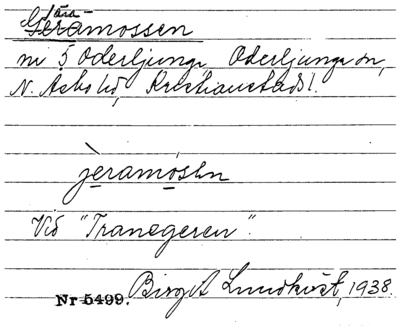 Geramossen
nr 5 Oderljunga, Oderljunga sn,
N. Åsbo hd, Kristianstads l.
jeramósen
Vid "Tranegeren".
Nr 5499. Birgit Lundkvist, 1938.